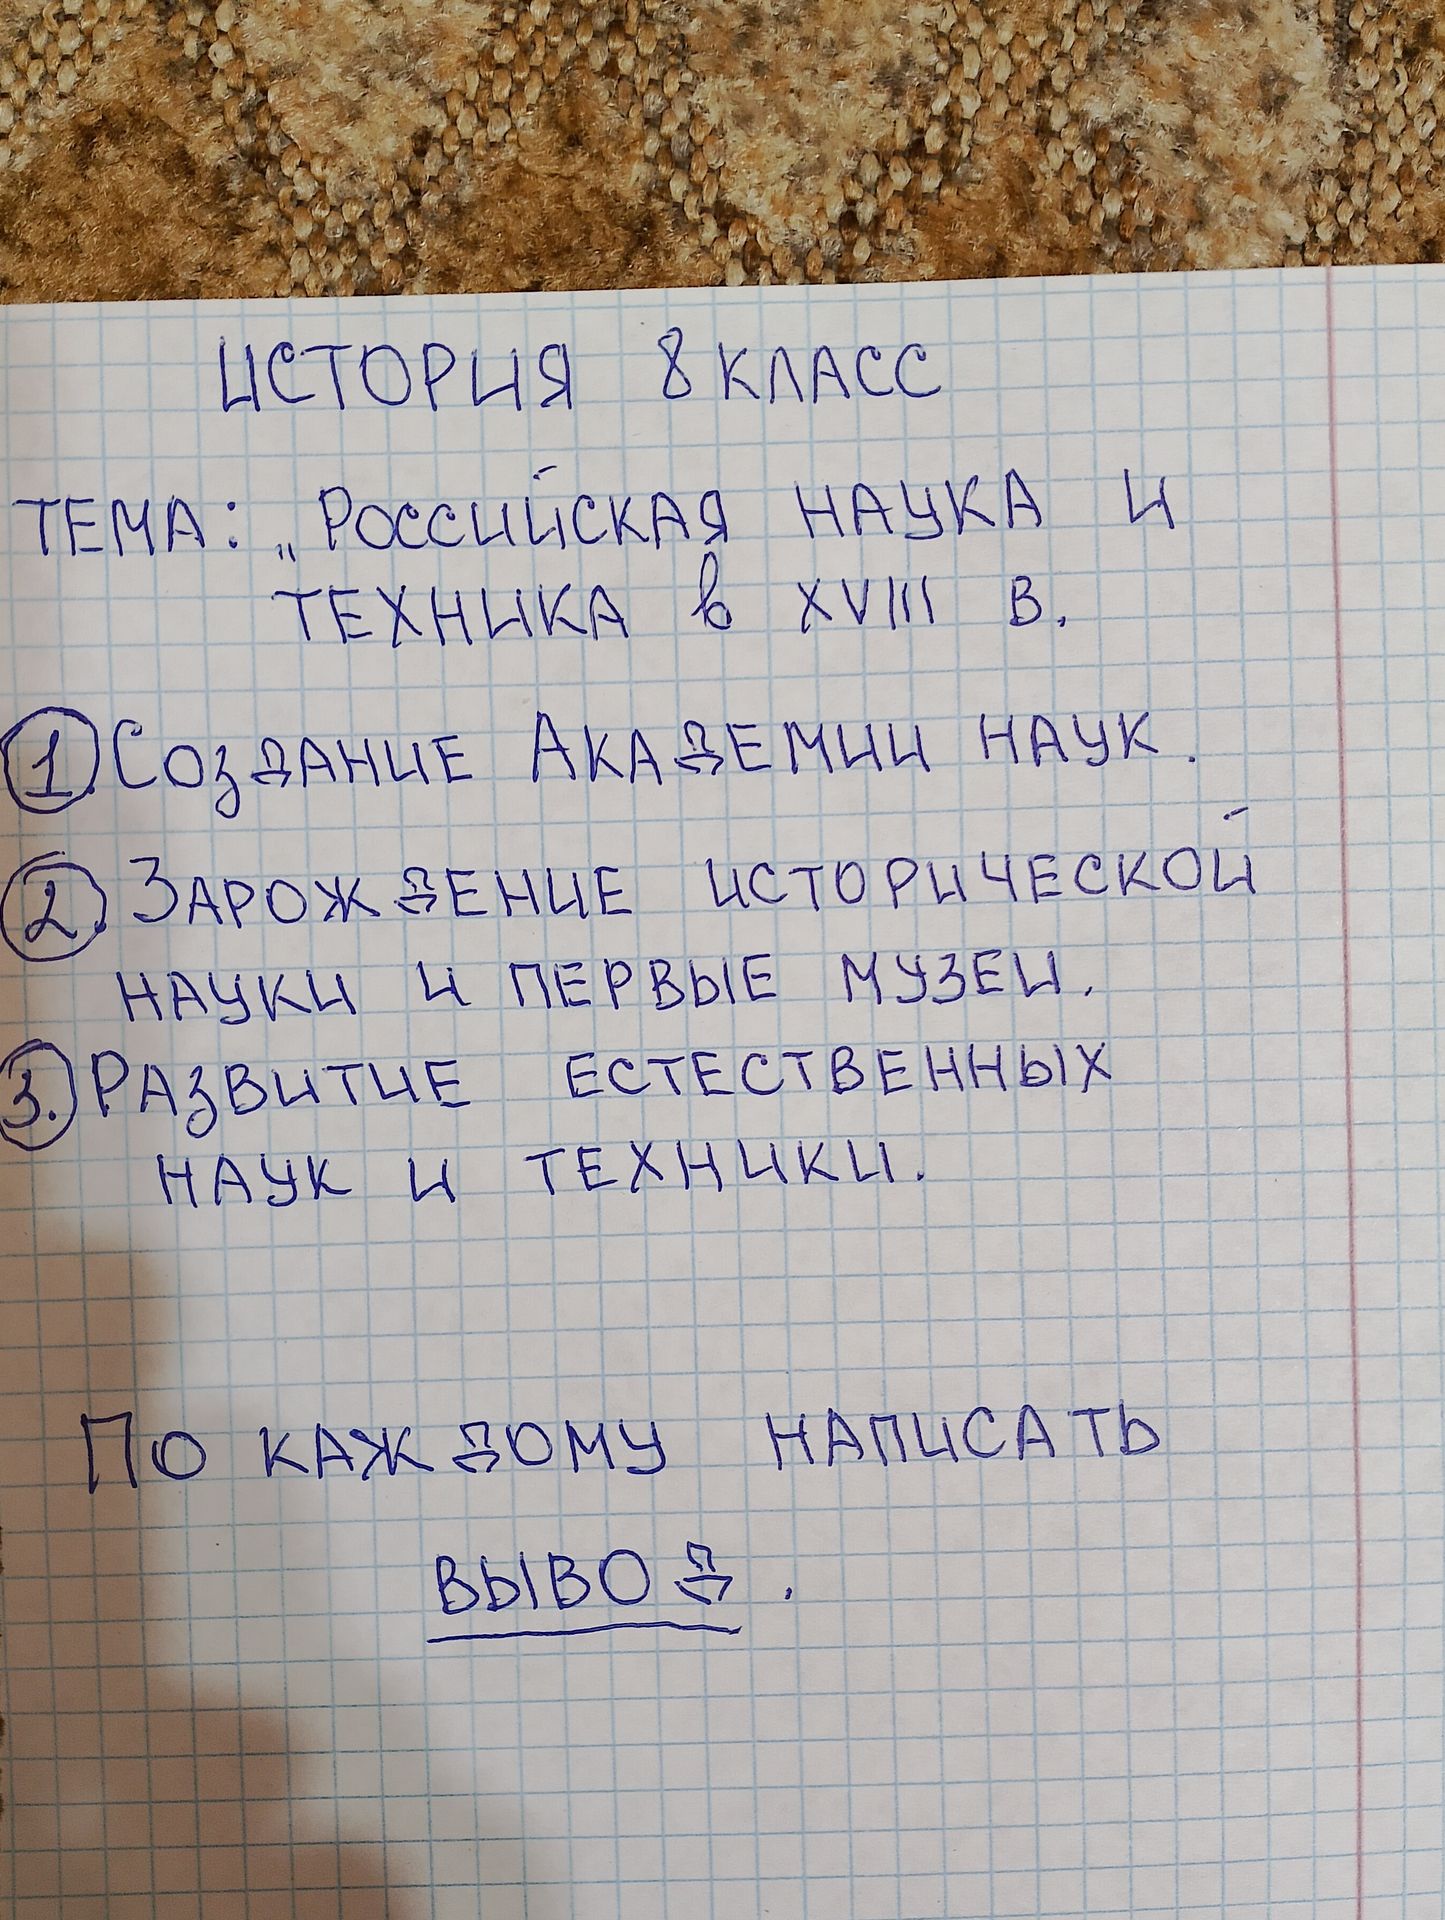 ИСТОРИЯ 8 КЛАСС
ТЕМА: „РОССИЙСКАЯ НАУКА И
ТЕХНИКА в XVIII В.
1. СОЗДАНИЕ АКАДЕМИИ НАУК.
2. ЗАРОЖДЕНИЕ ИСТОРИЧЕСКОЙ
НАУКИ И ПЕРВЫЕ МУЗЕИ.
3. РАЗВИТИЕ ЕСТЕСТВЕННЫХ
НАУК И ТЕХНИКИ.
ПО КАЖДОМУ НАПИСАТЬ
ВЫВОД.